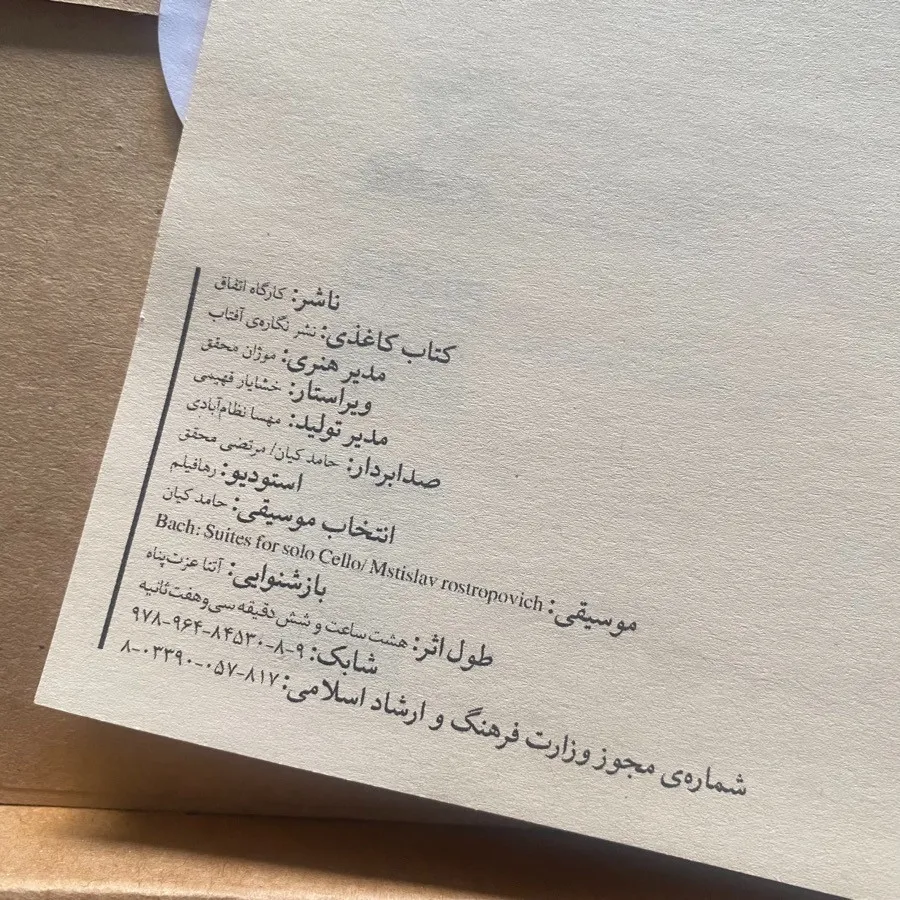 ناشر: کارگاه اتفاق
کتاب کاغذی: نشر نگاره‌ی آفتاب
مدیر هنری: موژان محقق
ویراستار: خشایار فهیمی
مدیر تولید: مهسا نظام‌آبادی
صدابردار: حامد کیان/ مرتضی محقق
استودیو: رهافیلم
انتخاب موسیقی: حامد کیان
موسیقی: Bach: Suites for solo Cello/ Mstislav rostropovich
بازشنوایی: آتنا عزت‌پناه
طول اثر: هشت ساعت و شش دقیقه سی‌وهفت‌ثانیه
شابک: ۹۷۸-۹۶۴-۸۴۵۳۰-۸-۹
شماره‌ی مجوز وزارت فرهنگ و ارشاد اسلامی: ۸۱۷-۰۵۷-۰۳۳۹۰-۸